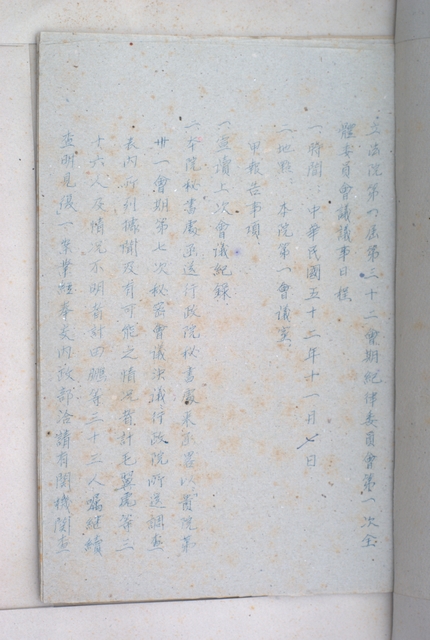 立法院第一屆第三十二會期紀律委員會第一次全
體委員會議議事日程
一時間　中華民國五十二年十一月　日
一地點　本院第一會議室
甲報告事項
一宣讀上次會議紀錄
一本院秘書處函送行政院秘書處來函畧以貴院第
卅一會期第七次秘密會議決議行政院所送調查
表內所列據聞及有可能之情況者計毛翼虎等三
十六人及情況不明者計田等三十三人囑繼續
查明見復一案業經奉交內政部洽請有關機關查